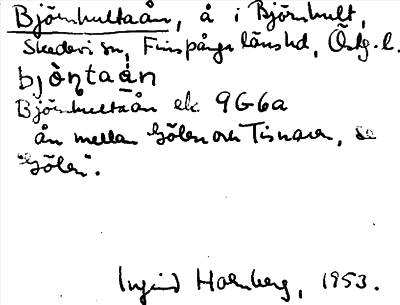 Björnhultaån, å i Björnhult,
Skedevi sn, Finspånga länshd, Östg. l.
bjò̀ṇtaá̀n
Björnhultaån ek 9G6a
ån mellan Gölen och Tisnaren, se
"Gölen".
Ingrid Holmberg, 1953.